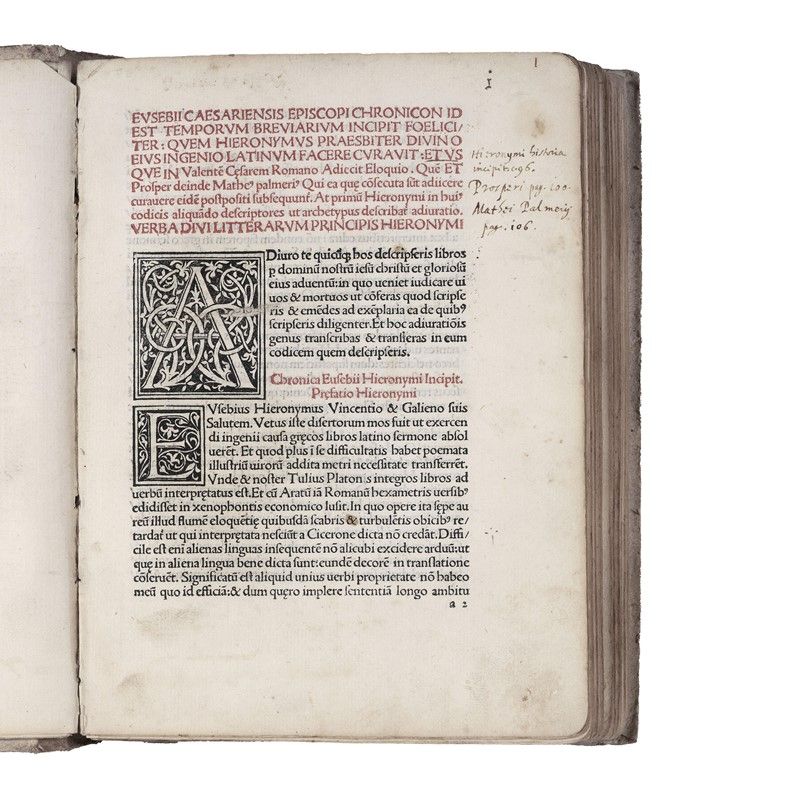 1
i
EVSEBII CAESARIENSIS EPISCOPI CHRONICON ID
EST TEMPORVM BREVIARIVM INCIPIT FOELICI/
TER: QVEM HIERONYMVS PRAESBITER DIVINO
EIVS INGENIO LATINVM FACERE CVRAVIT: ET VS
QVE IN Valentē Cęsarem Romano Adiecit Eloquio. Quē ET
Prosper deinde Matheꝰ palmeriꝰ Qui ea quę cōsecuta sūt adiicere
curauere eidē postpositi subsequunt̃. At primū Hieronymi in huiꝰ
codicis aliquādo descriptores ut archetypus describat̃ adiuratio.
VERBA DIVI LITTERARVM PRINCIPIS HIERONYMI
Hieronymi historia
incipit
Prosperi pag. 100.
Mathei Palmerij
pag. 106.
ADiuro te quicūqꝫ hos descripseris libros
p dominū nostrū iesū christū et gloriosū
eius aduentū: in quo ueniet iudicare ui
uos & mortuos ut cōferas quod scripse
ris & emēdes ad exēplaria ea de quibꝰ
scripseris diligenter. Et hoc adiuratiōis
genus transcribas & transferas in eum
codicem quem descripseris.
Chronica Eusebii Hieronymi Incipit.
Pręfatio Hieronymi
EVsebius Hieronymus Vincentio & Galieno suis
Salutem. Vetus iste disertorum mos fuit ut exercen
di ingenii causa gręcos libros latino sermone absol
uerēt. Et quod plus ī se difficultatis habet poemata
illustriū uirorū addita metri necessitate transferrēt.
Vnde & noster Tulius Platonis integros libros ad
uerbū interpretatus est. Et cū Aratū iā Romanū hexametris uersibꝰ
edidisset in xenophontis economico lusit. In quo opere ita sępe au
reū illud flumē eloquētię quibusdā scabris & turbulētis obicibꝰ re/
tardat̃ ut qui interpretata nesciūt a Cicerone dicta nō credāt. Diffi/
cile est enī alienas linguas insequentē nō alicubi excidere arduū: ut
quę in aliena lingua bene dicta sunt: eundē decorē in translatione
cōseruēt. Significatū est aliquid unius uerbi proprietate nō habeo
meū quo id efficiā: & dum quęro implere sententiā longo ambitu
a 2